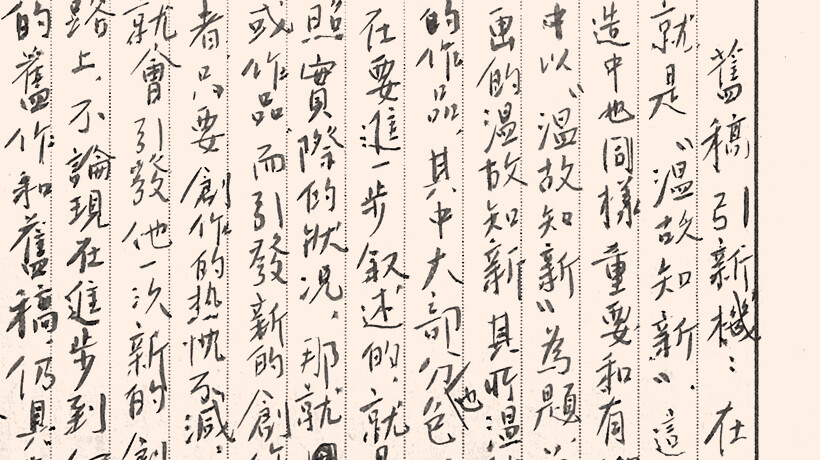 舊稿引新機：在
就是“溫故知新”，這
造中也同樣重要和有
中以“溫故知新”為題，
画的溫故知新，其所溫
的作品，其中大部份色也
在要進一步叙述的，就是
照實際的狀況，那就
或作品而引發新的創作
者，只要創作的熱忱不減，
就會引發他一次新的創
路上，不論現在進步到
的舊作和舊稿，仍具